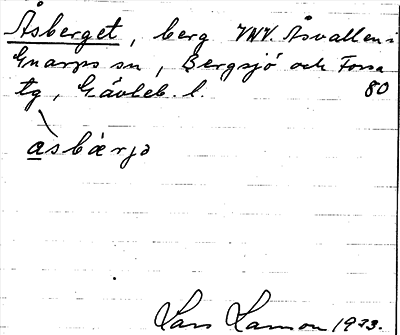 Åsberget, berg VNV. Åsvallen i
Gnarps sn, Bergsjö och Forsa
tg, Gävleb. l. 80
åsbärjə
Lars Larsson 1933.